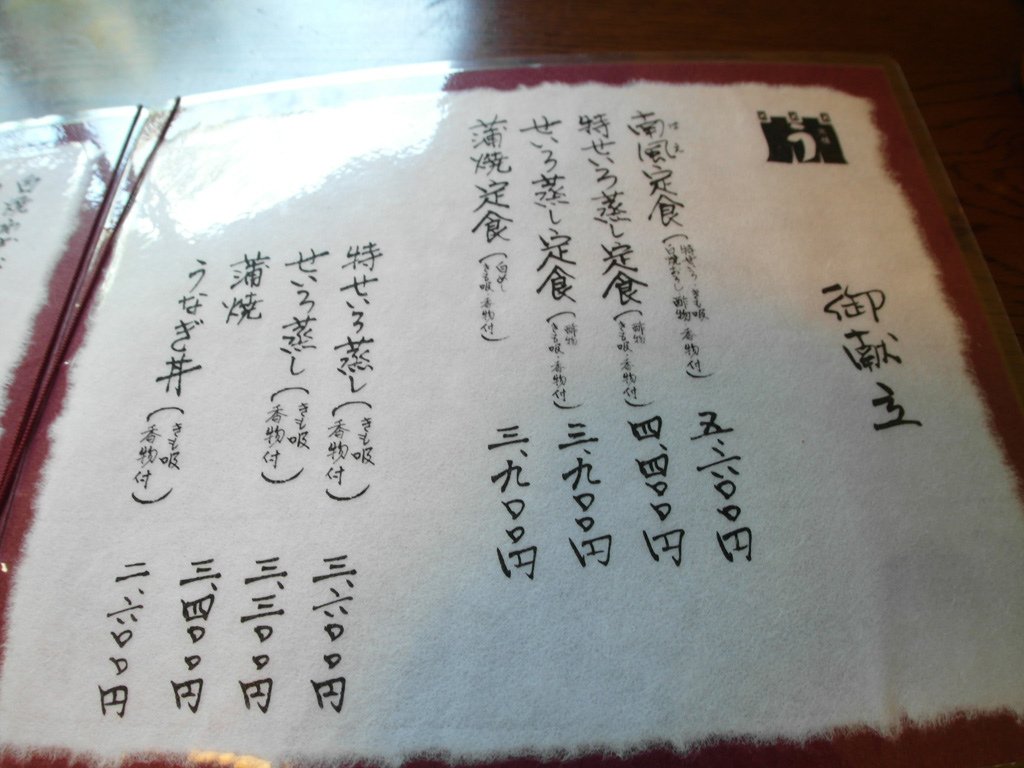 う
御献立
南風定食(特せいろ・きも吸 白焼おろし 酢物 香物付) 五、六〇〇円
特せいろ蒸し定食(酢物 きも吸・香物付) 四、四〇〇円
せいろ蒸し定食(酢物 きも吸・香物付) 三、九〇〇円
蒲焼定食(白めし きも吸・香物付) 三、九〇〇円
特せいろ蒸し(きも吸 香物付) 三、六〇〇円
せいろ蒸し(きも吸 香物付) 三、三〇〇円
蒲焼 三、四〇〇円
うなぎ丼(きも吸 香物付) 二、六〇〇円